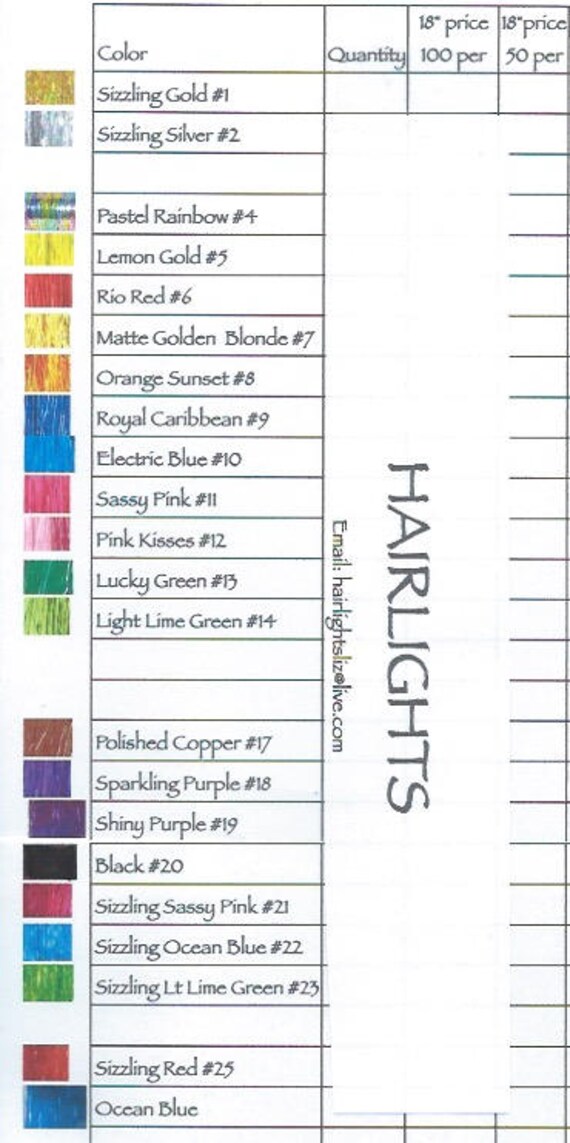 Color
Quantity
18" price
100 per
18"price
50 per
Sizzling Gold #1
Sizzling Silver #2
Pastel Rainbow #4
Lemon Gold #5
Rio Red #6
Matte Golden Blonde #7
Orange Sunset #8
Royal Caribbean #9
Electric Blue #10
Sassy Pink #11
Pink Kisses #12
Lucky Green #13
Light Lime Green #14
Polished Copper #17
Sparkling Purple #18
Shiny Purple #19
Black #20
Sizzling Sassy Pink #21
Sizzling Ocean Blue #22
Sizzling Lt Lime Green #23
Sizzling Red #25
Ocean Blue
HAIRLIGHTS
Email: hairlightsliz@live.com